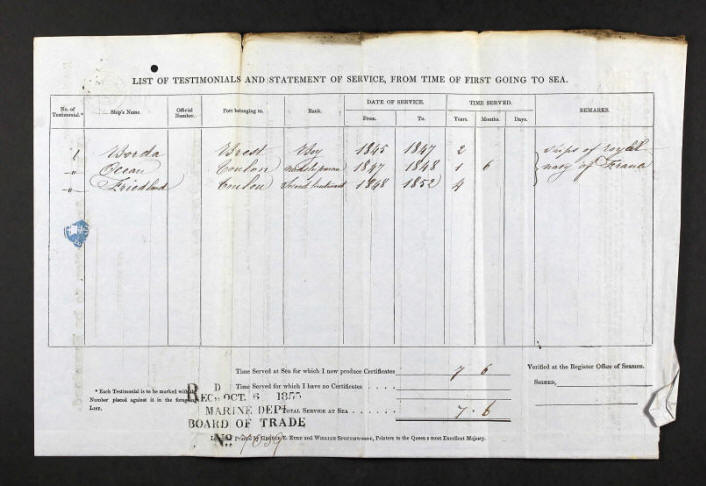 LIST OF TESTIMONIALS AND STATEMENT OF SERVICE, FROM TIME OF FIRST GOING TO SEA.
No. of Testimonial.* Ship's Name. Official Number. Port belonging to. Rank. DATE OF SERVICE. From. To. TIME SERVED. Years. Months. Days. REMARKS.
1 Borda Brest Boy 1845 1847 2 Ships of royal
" Ocean Toulon Midshipman 1847 1848 1 6 navy of France
" Friedland Toulon Second Lieutenant 1848 1852 4
Time Served at Sea for which I now produce Certificates 7 6
Verified at the Register Office of Seamen.
Time Served for which I have no Certificates . . . .
SIGNED,
* Each Testimonial is to be marked with
Number placed against it in the
Form.
TOTAL SERVICE AT SEA . . . . . . 7 . 6
RECD OCT. 6 1855
MARINE DEPT
BOARD OF TRADE
No
Printed by GEORGE E. EYRE and WILLIAM SPOTTISWOODE, Printers to the Queen's most Excellent Majesty.